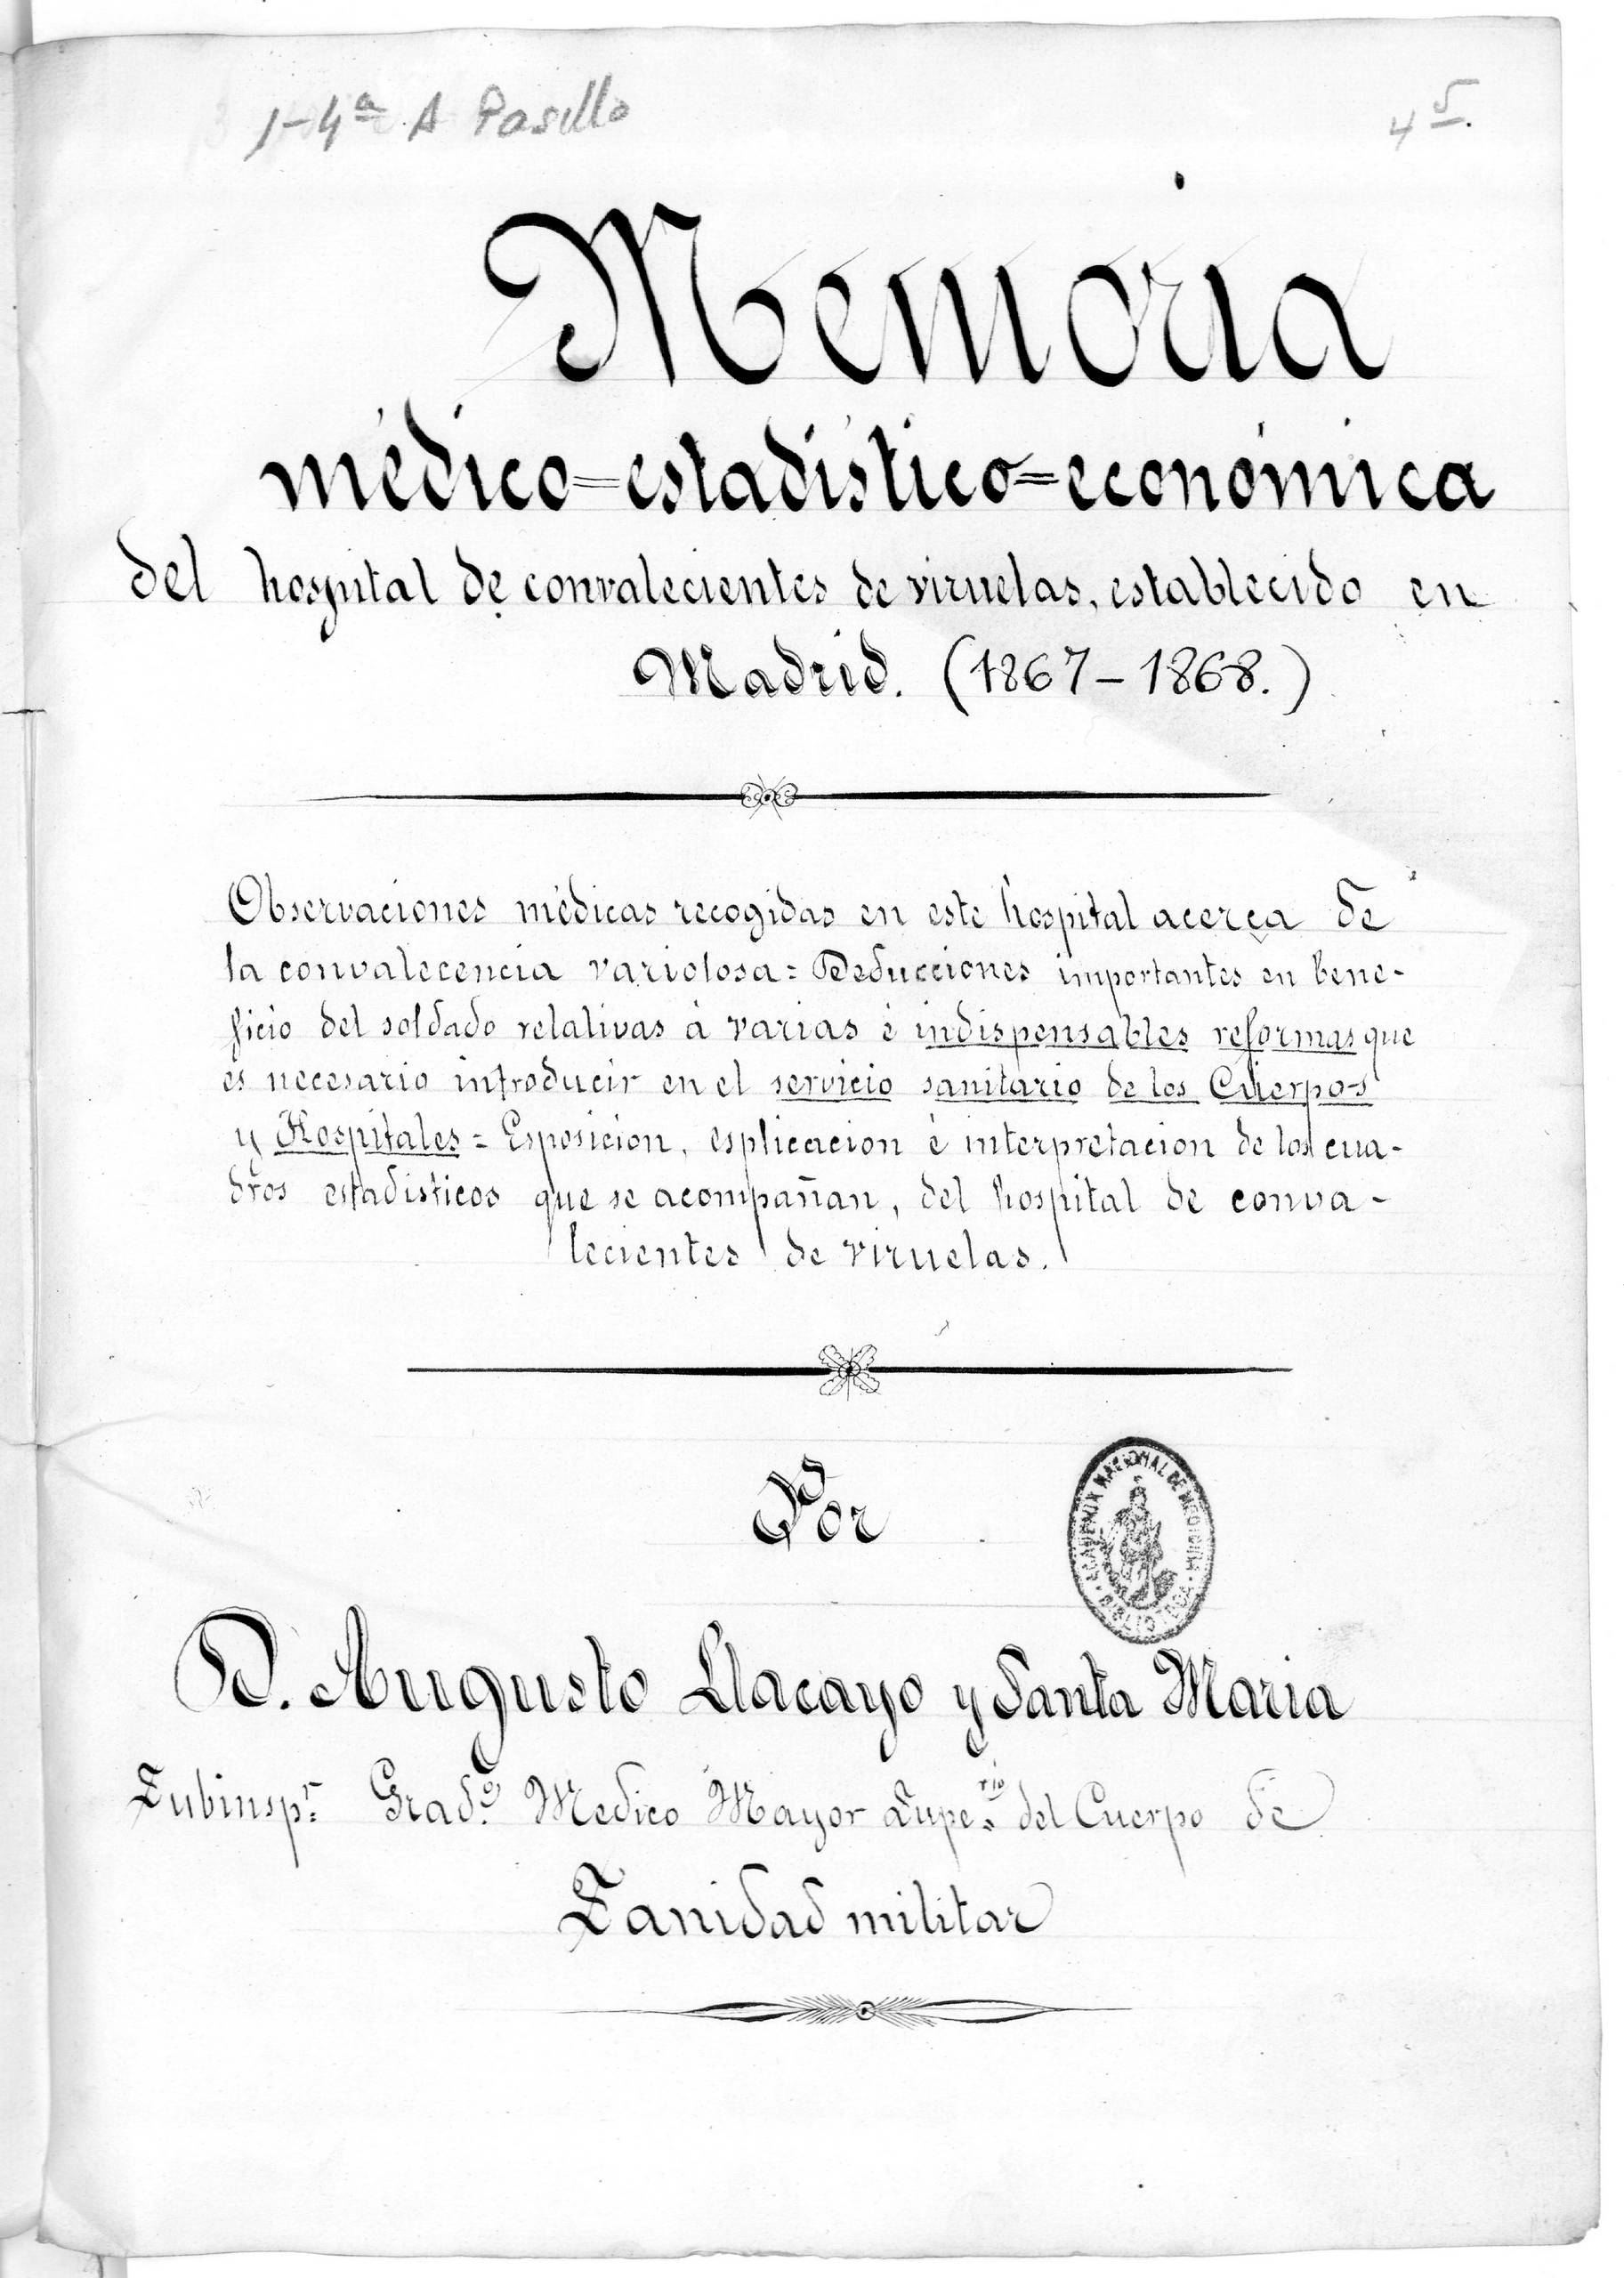 1-4ª A Pasillo
4 5.
Memoria
médico=estadístico=económica
del hospital de convalecientes de viruelas, establecido en
Madrid. (1867-1868.)
Observaciones médicas recogidas en este hospital acerca de
la convalecencia variolosa = Deducciones importantes en bene-
ficio del soldado relativas á varias é indispensables reformas que
es necesario introducir en el servicio sanitario de los Cuerpos
y Hospitales = Esposición, esplicacion é interpretacion de los cua-
dros estadísticos que se acompañan, del hospital de conva-
lecientes de viruelas.
Por
ACADEMIA NACIONAL DE MEDICINA
BIBLIOTECA
D. Augusto Llacayo y Santa Maria
Subinspr. Grado. Medico Mayor Supe.rio del Cuerpo de
Sanidad militar